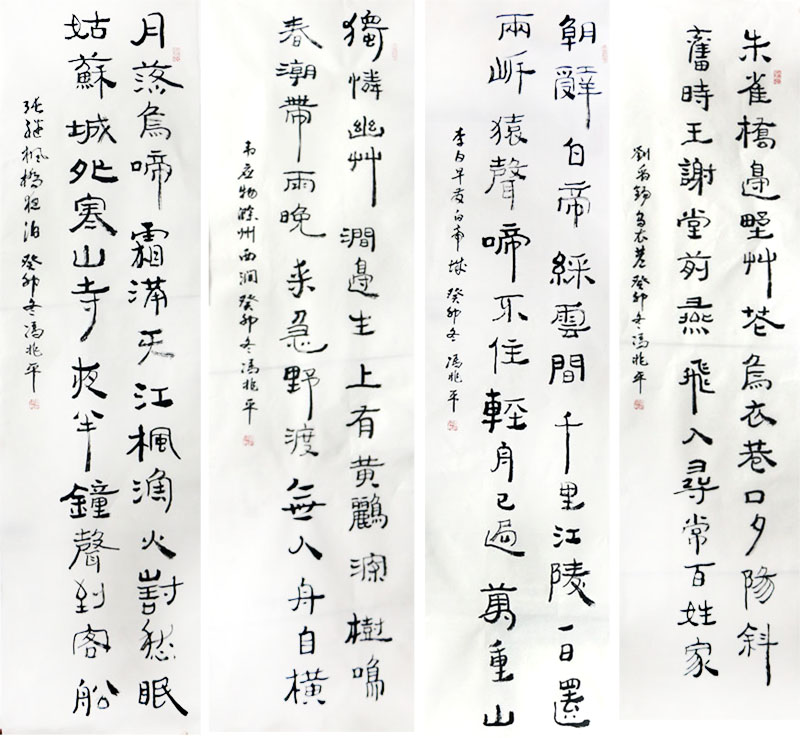 朱雀橋邊野艸花烏衣巷口夕陽斜
舊時王謝堂前燕飛入尋常百姓家
劉禹錫烏衣巷 癸卯冬馮兆平
朝辭白帝綵雲間千里江陵一日還
兩岸猿聲啼不住輕舟已過萬重山
李白早发白帝城 癸卯冬馮兆平
獨憐幽艸澗邊生上有黃鸝深樹鳴
春潮帶雨晚來急野渡無人舟自橫
韦应物滁州西澗 癸卯冬馮兆平
月落烏啼霜滿天江楓漁火對愁眠
姑蘇城外寒山寺夜半鐘聲到客船
张继楓橋夜泊 癸卯冬馮兆平